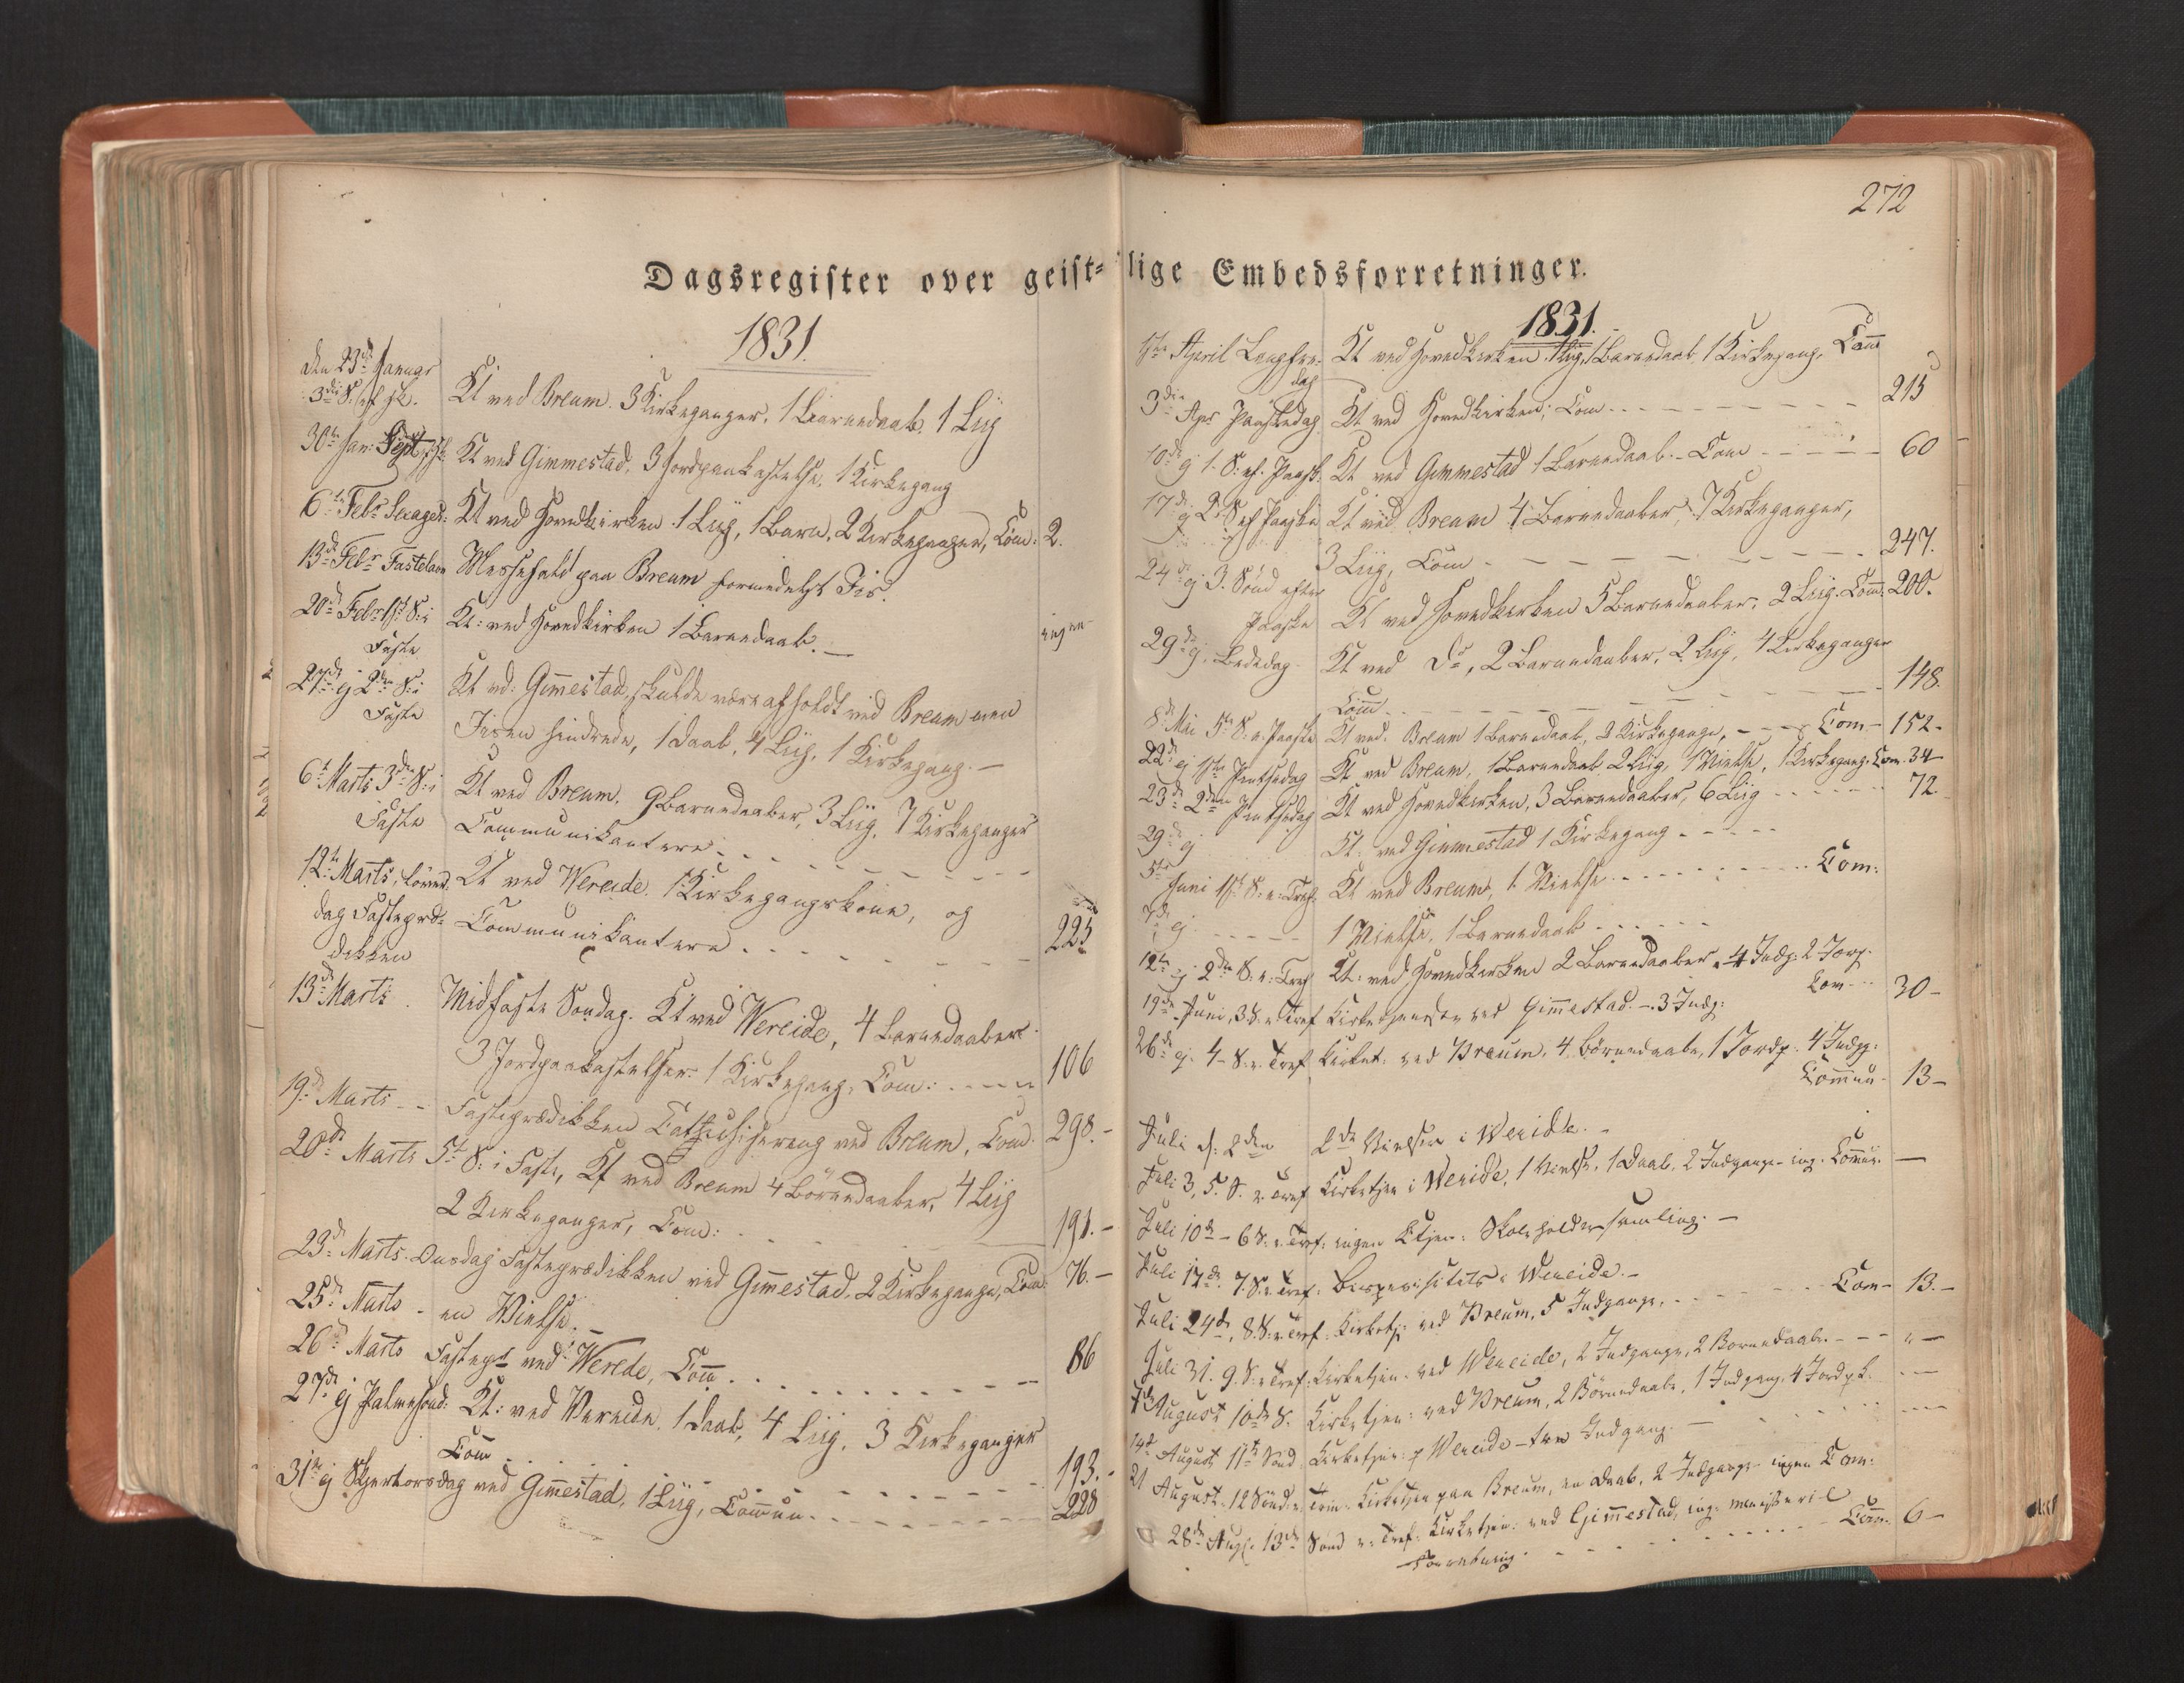 272
Dagsregister over geist-lige Embedsforretninger.
1831.
den 23de Januar
3die S: ef h3k. Kt ved Breum. 3 Kirkeganger. 1 Barnedaab. 1 Liig
30te Jan: Kt ved Gimmestad. 3 Jordpaakastelse. 1 Kirkegang
6te Febr Sexages: Kt ved Hovedkirken 1 Liig, 1 Barn, 2 Kirkeganger, Com: 2.
13de Febr Fastelavn Messefald paa Breum formedelst Iis.
20de Febr 1ste S: i Kt: ved Hovedkirken 1 Barnedaab. — ingen
Faste
27de ej 2den S: i Kt ved: Gim̄estad, skulde være afholdt ved Breum men
Faste Iisen hindrede, 1 Daab, 4 Liig, 1 Kirkegang. —
6te Marts 3die S: i Kt ved Breum. 9 Barnedaaber, 3 Liig, 7 Kirkeganger
Faste Communikantere - - - - - - -
12te Marts, löver- Kt ved Wereide. 1 Kirkegangskone, og
dag Fastepræ- Communikantere . . . - - - - - 225
dikken
13de Marts Midfaste Søndag. Kt ved Wereide, 4 Barnedaaber
3 Jordpaakastelser. 1 Kirkegang, Com: - - - - 106
19de Marts - - Fasteprædikken Cathecisering ved Breum, Com: 298. -
20de Marts 5te S: i Faste, Kt ved Breum 4 Börnedaaber, 4 Liig
2 Kirkeganger, Com: . . . 191. -
23de Marts. Onsdag Fasteprædikken ved Gim̄estad, 2 Kirkegange, Com: 76. —
25de Marts - en Vielse. —
26de Marts Fastepr ved Werede, Com̄ . . . . . . . . 86
27de ej Palmesønd: Kt: ved Wereide. 1 Daab, 4 Liig, 3 Kirkeganger
Com̄ . . . . - - - - - 193. -
31te ej Skjertorsdag ved Gim̄estad, 1 Liig, Com̄un. . . - - - - - 228
1831.
1ste April Langfre- Kt ved Hovedkirken. 1 Liig, 1 Barnedaab 1 Kirkegang, Com̄
dag
3die Apr Paaskedag Kt ved Hovedkirken; Com. - - - - - - - - 215
10de ej 1. S: ef. Paask: Kt ved Gimmestad 1 Barnedaab. - Com - - - - - 60
17de ej 2 S ef Paaske Kt ved Breum 4 Barnedaaber, 7 Kirkeganger,
3 Liig, Com - - - - - - - - - 247.
24de ej 3. Sønd efter
Paaske Kt ved Hovedkirken 5 Barnedaaber, 2 Liig. Com̄: 200.
29de ej. Bededag. Kt ved Do, 2 Barnedaaber, 2 Liig, 4 Kirkeganger
Com̄ - - - - - - - 148.
8de Mai 5te S. e. Paaske Kt ved. Breum 1 Barnedaab, 3 Kirkegange, - - - Com - 152 -
22de ej 1ste Pintsedag Kt ved Breum, 1 Barnedaab 2 Liig, 1 Vielse, 1 Kirkegang. Com. 34
23de 2den Pintsedag Kt ved Hovedkirken, 3 Barnedaaber, 6 Liig - - - - - 72.
29de ej Kt: ved Gimmestad 1 Kirkegang - - - - -
5te Juni 1ste S: e: Tref: Kt ved Breum, 1 Vielse - - - - - - - Com:
7de ej - - - - - 1 Vielse, 1 Barnedaab - - - - - -
12te ej 2den S: e: Tref Kt: ved Hovedkirken 2 Barnedaaber, 4 Indg: 2 Jorp.
Com - - 30 -
19de Juni, 3 S. e Tref Kirketjeneste ved Gim̄estad. - 3 Indg:
26de ej. 4 - S. e. Tref Kirket: ved Breum. 4. Børnedaabe, 1 Jordp. 4 Indgg:
Com̄un - 13 -
Juli d: 2den 2de Vielser i Wereide. -
Juli 3, 5. S. e. Tref Kirketjen i Wereide, 1 Vielse. 1 Daab. 2 Indgange - ing. Com̄un: —
Juli 10de - 6 S: e. Tref: ingen Ktjen: Skoleholdersamling. —
Juli 17de. 7. S. e Tref: Bispevisitats i Wereide. -
Juli 24de, 8. S: e. Tref: Kirketj: ved Breum, 5 Indgange. - - - - - Com - 13. -
Juli 31. 9. S: e Tref: Kirketjen. ved Wereide, 2 Indgange, 2 Børnedaab. - - - " -
7de August 10de S. Kirketjen: ved Breum, 2 Børnedaabe, 1 Indgang. 4 Jordp.k. - -
14de August 11te Sønd Kirketjen: p Wereide - tre Indgang. —
21 August. 12 Sønd: e Trin: Kirketjen paa Breum, en Daab, 2 Indgange - ingen Com:
28de Aug. 13de Sønd e: Tref: Kirketjen: ved Gim̄estad, ing: ministeriel
Forretning - - - - - - Com̄. 6 -